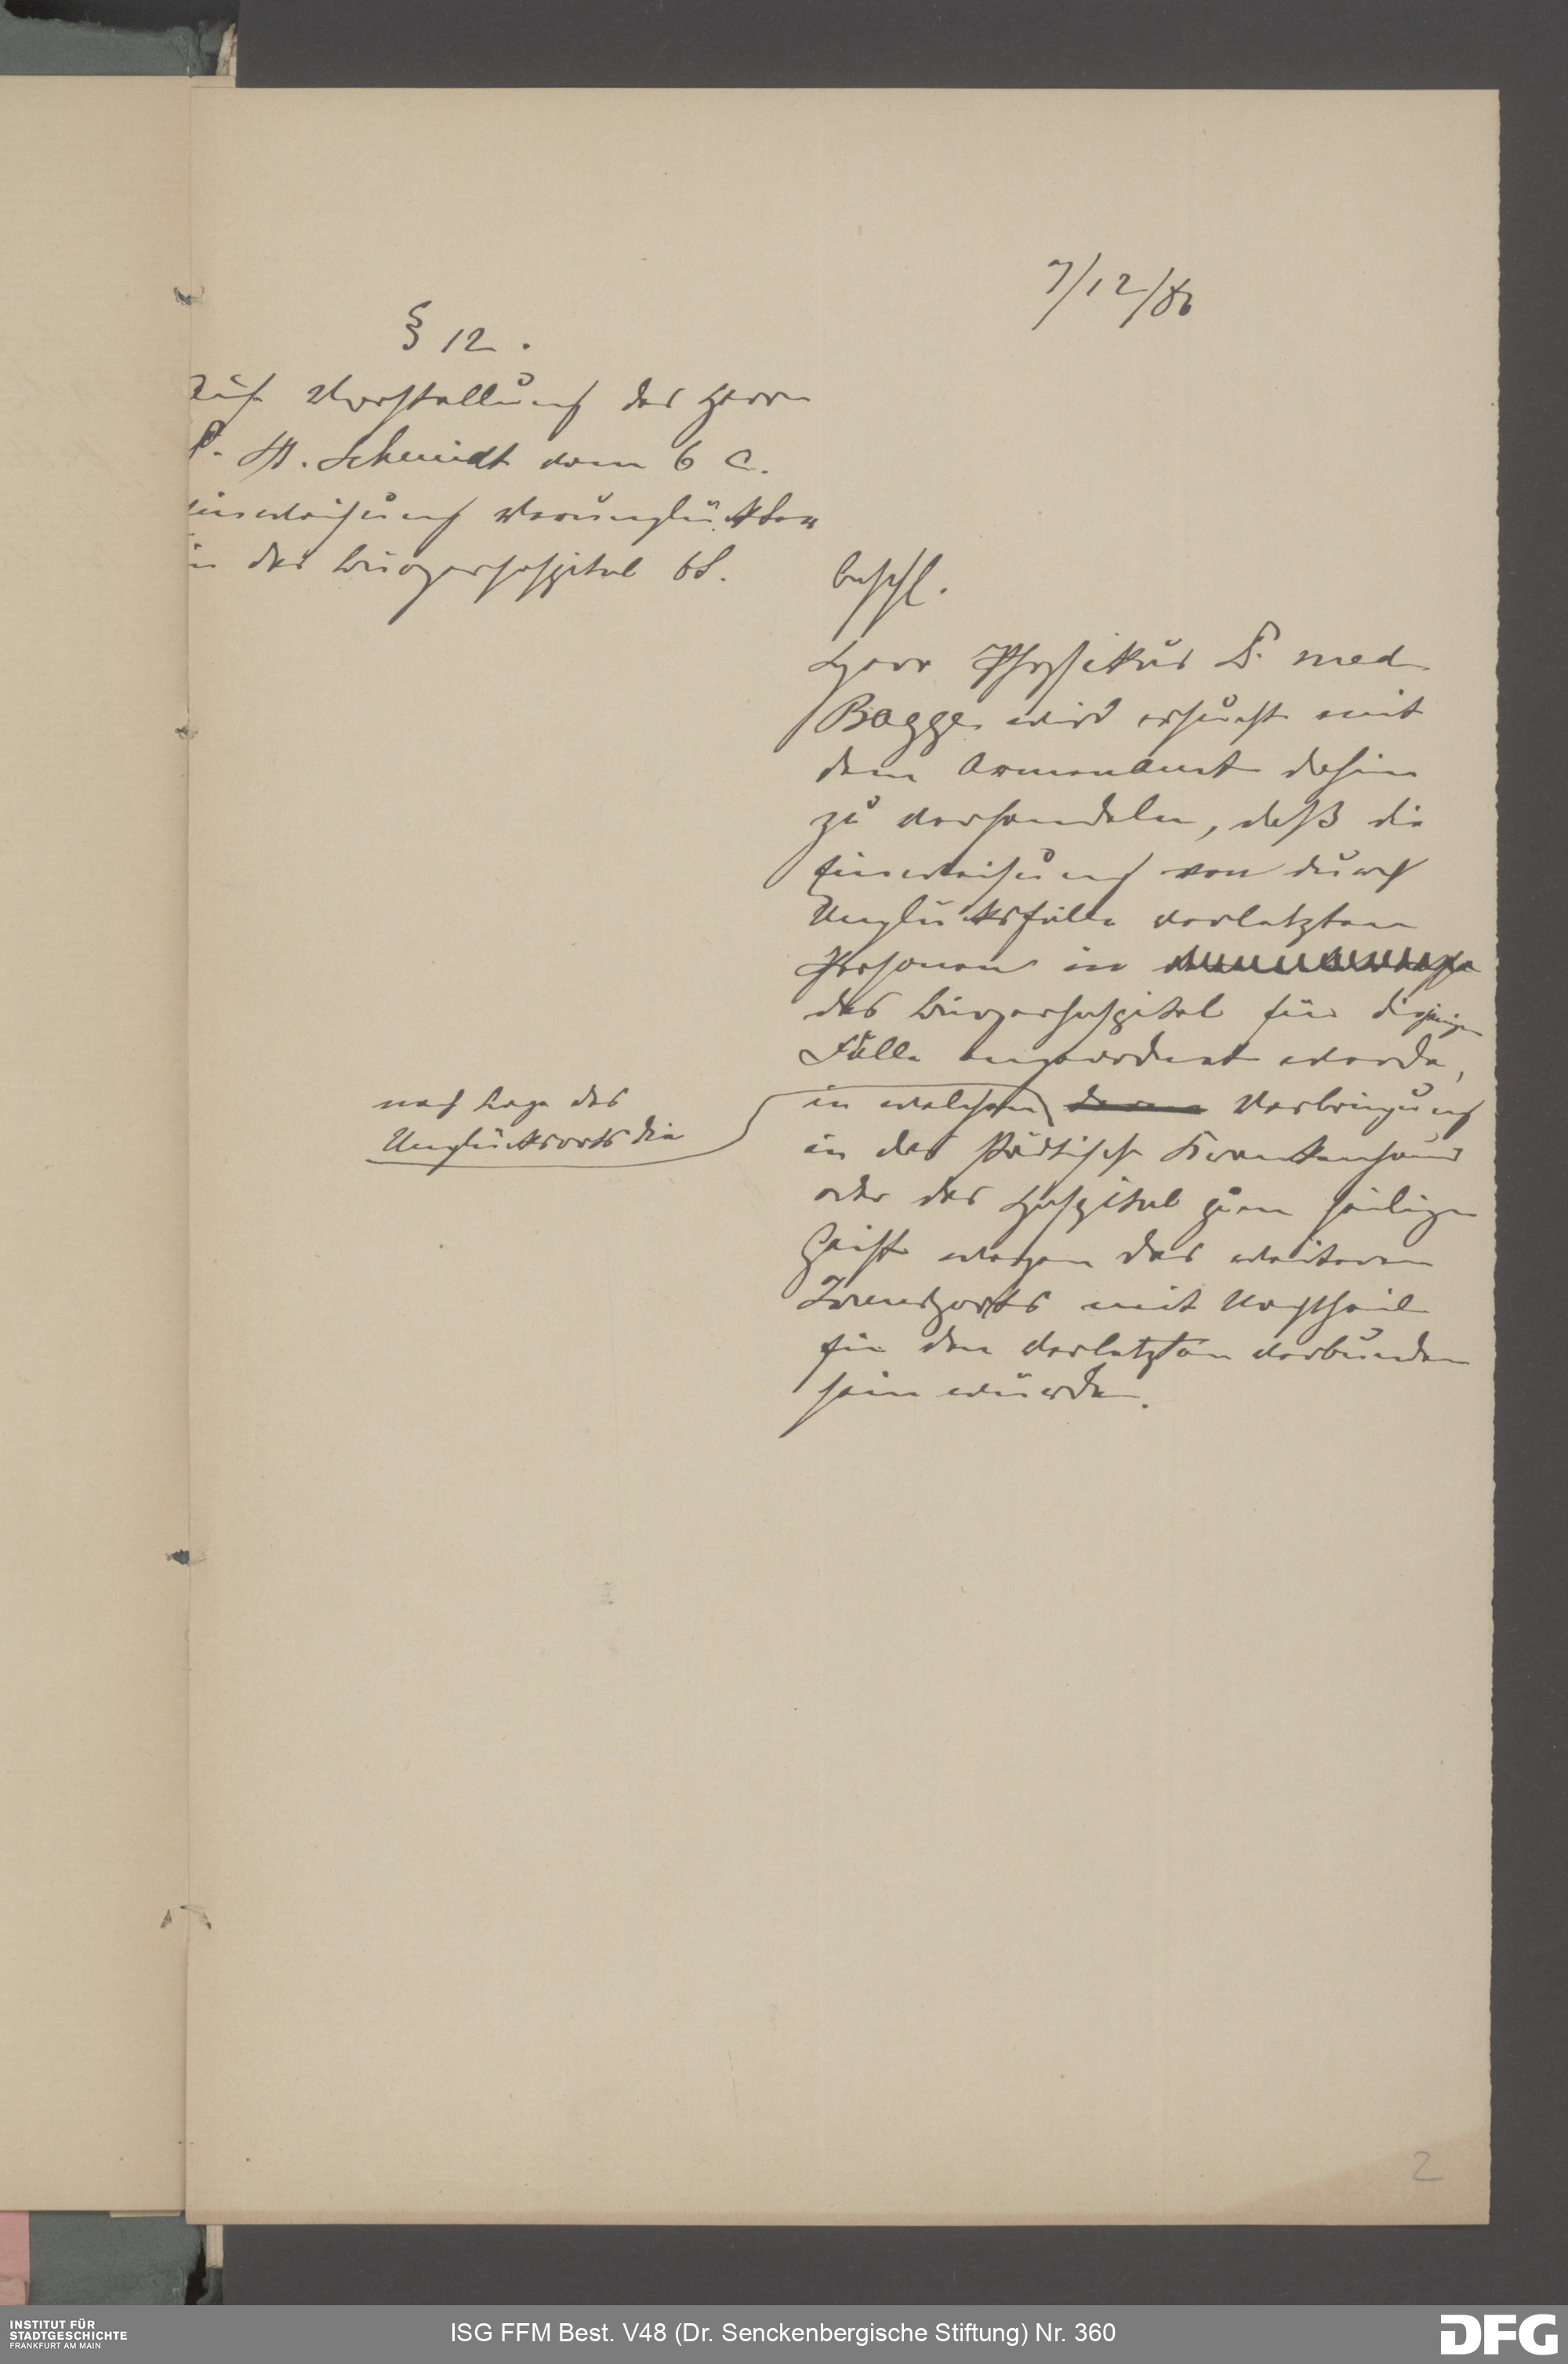 7/12/86
§ 12.
Auf Vorstellung des Herrn
Dr. M. Schmidt vom 6 c.
Einweisung Verunglückter
in das Bürgerhospital btr.
beschl.
Herr Physikus Dr. med
Bagge wird ersucht mit
dem Armenamt dahin
zu verhandeln, daß die
Einweisung von durch
Unglücksfälle verletzten
Personen in
das Bürgerhospital für diejenigen
Fälle angeordnet werde,
in welchen deren Verbringung
nach Lage des
Unglücksorts die
in das städtische Krankenhaus
oder das Hospital zum heiligen
Geist wegen des weiteren
Transports mit Nachtheil
für den Verletzten verbunden
sein würde.
2
INSTITUT FÜR
STADTGESCHICHTE
FRANKFURT AM MAIN
ISG FFM Best. V48 (Dr. Senckenbergische Stiftung) Nr. 360
DFG